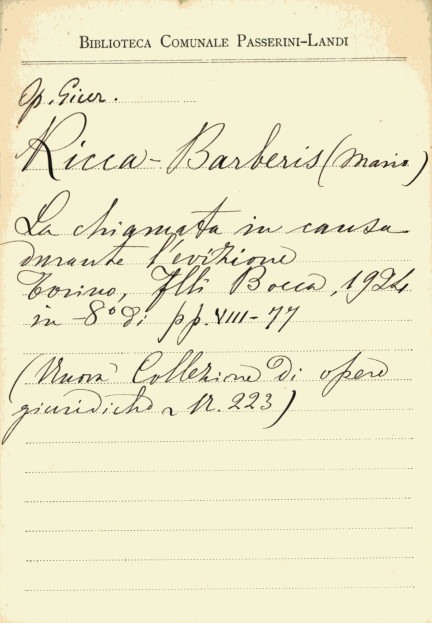 BIBLIOTECA COMUNALE PASSERINI-LANDI
Op. Giur.
Ricca-Barberis (Mario)
La chiamata in causa
durante l'evizione
Torino, Flli Bocca, 1924
in-8° di pp. VIII-77
(Nuova Collezione di opere
giuridiche N. 223)